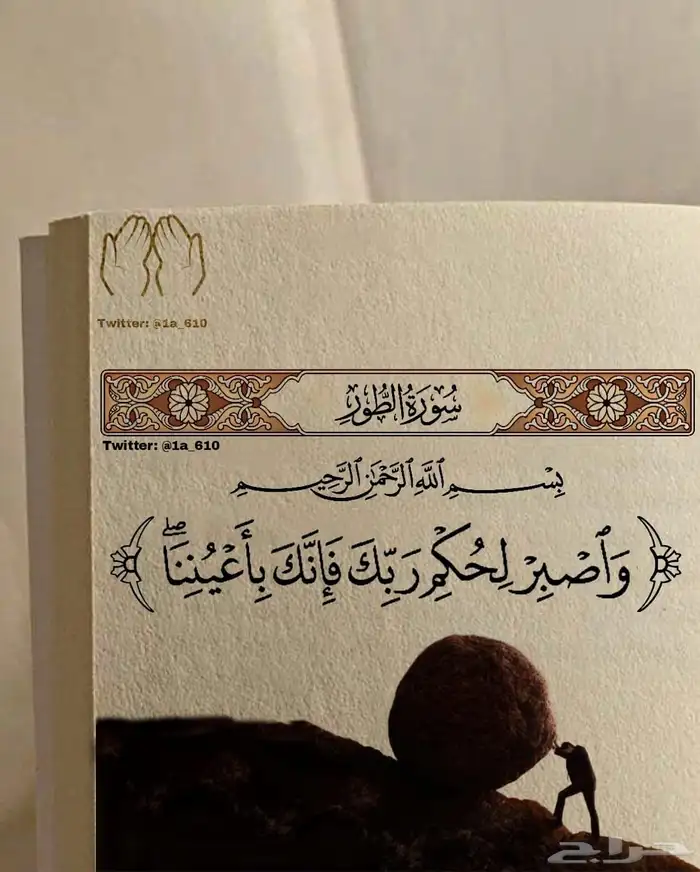 Twitter: @1a_610
سُورَةُ الطُّورِ
Twitter: @1a_610
بِسْمِ ٱللَّهِ ٱلرَّحْمَٰنِ ٱلرَّحِيمِ
﴿ وَٱصْبِرْ لِحُكْمِ رَبِّكَ فَإِنَّكَ بِأَعْيُنِنَاۖ ﴾
حراج